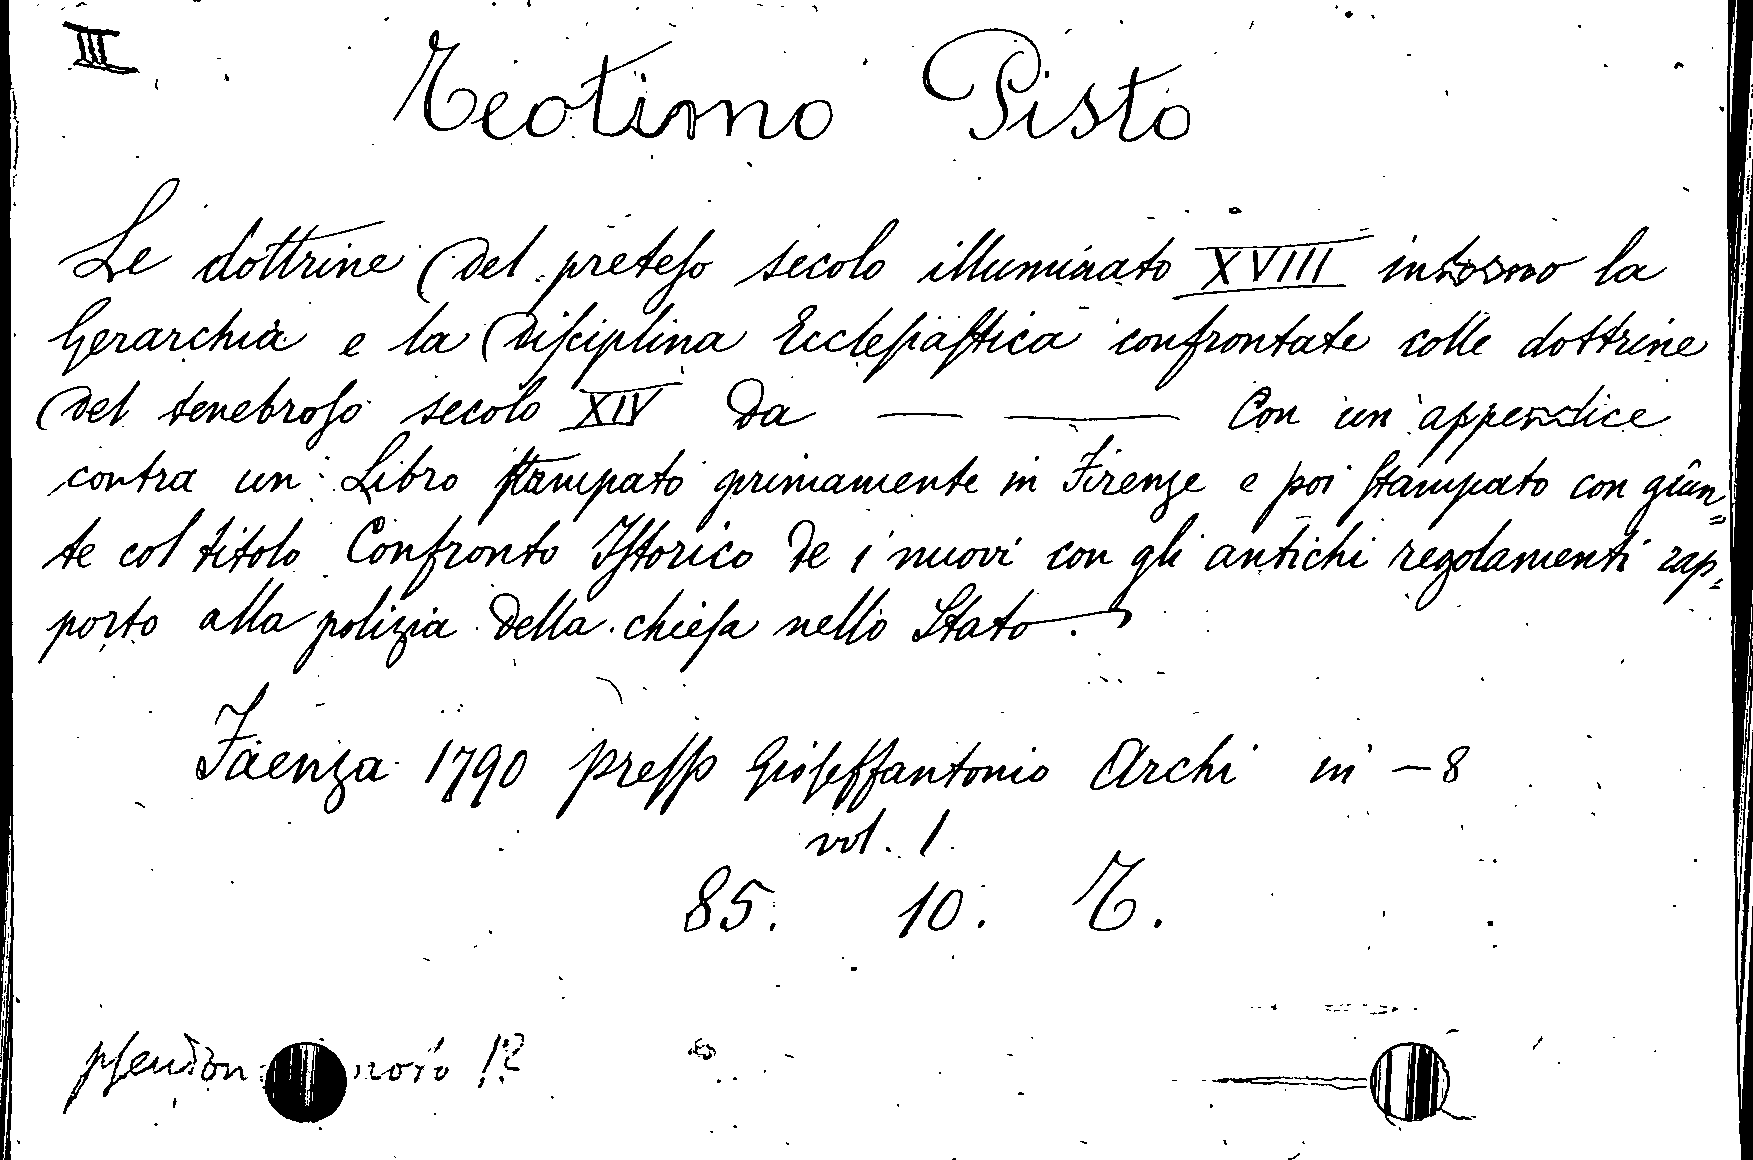 III
Teotimo Pisto
Le dottrine del preteso secolo illuminato XVIII intorno la
Gerarchia e la Disciplina Ecclesiastica confrontate colle dottrine
del tenebroso secolo XIV Da — — Con un appendice
contra un Libro stampato primamente in Firenze e poi stampato con giun=
te col titolo Confronto Istorico de i nuovi con gli antichi regolamenti rap=
porto alla polizia della chiesa nello Stato.
Faenza 1790 presso Gioseffantonio Archi in - 8
vol. 1.
85. 10. T.
!?